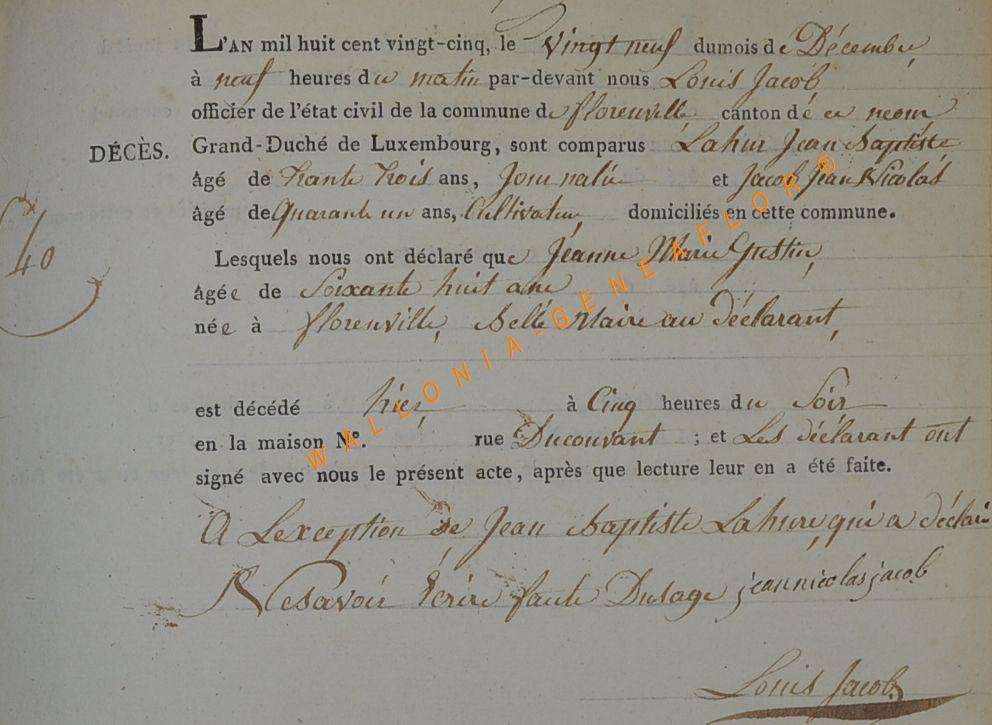 L'AN mil huit cent vingt-cinq, le vingt neuf du mois de Décembre
à neuf heures du matin par-devant nous Louis Jacob
officier de l'état civil de la commune de florenville canton de ce nom
DÉCÈS. Grand-Duché de Luxembourg, sont comparus Lahur Jean Baptiste
âgé de trante trois ans, Journalié et Jacob Jean Nicolas
âgé de Quarante un ans, Cultivateur domiciliés en cette commune.
40
Lesquels nous ont déclaré que Jeanne Marie Gustin
âgée de Soixante huit ans
née à florenville, Belle Maire au déclarant,
est décédé hier à Cinq heures du Soir
en la maison N°. rue Ducouvant ; et Les déclarant ont
signé avec nous le présent acte, après que lecture leur en a été faite.
A Lexception de Jean Baptiste Lahure, qui a déclaré
Ne savoir Ecrire faute Dusage jean nicolas jacob
Louis Jacob
WALLONIA-GENEAFLOR®